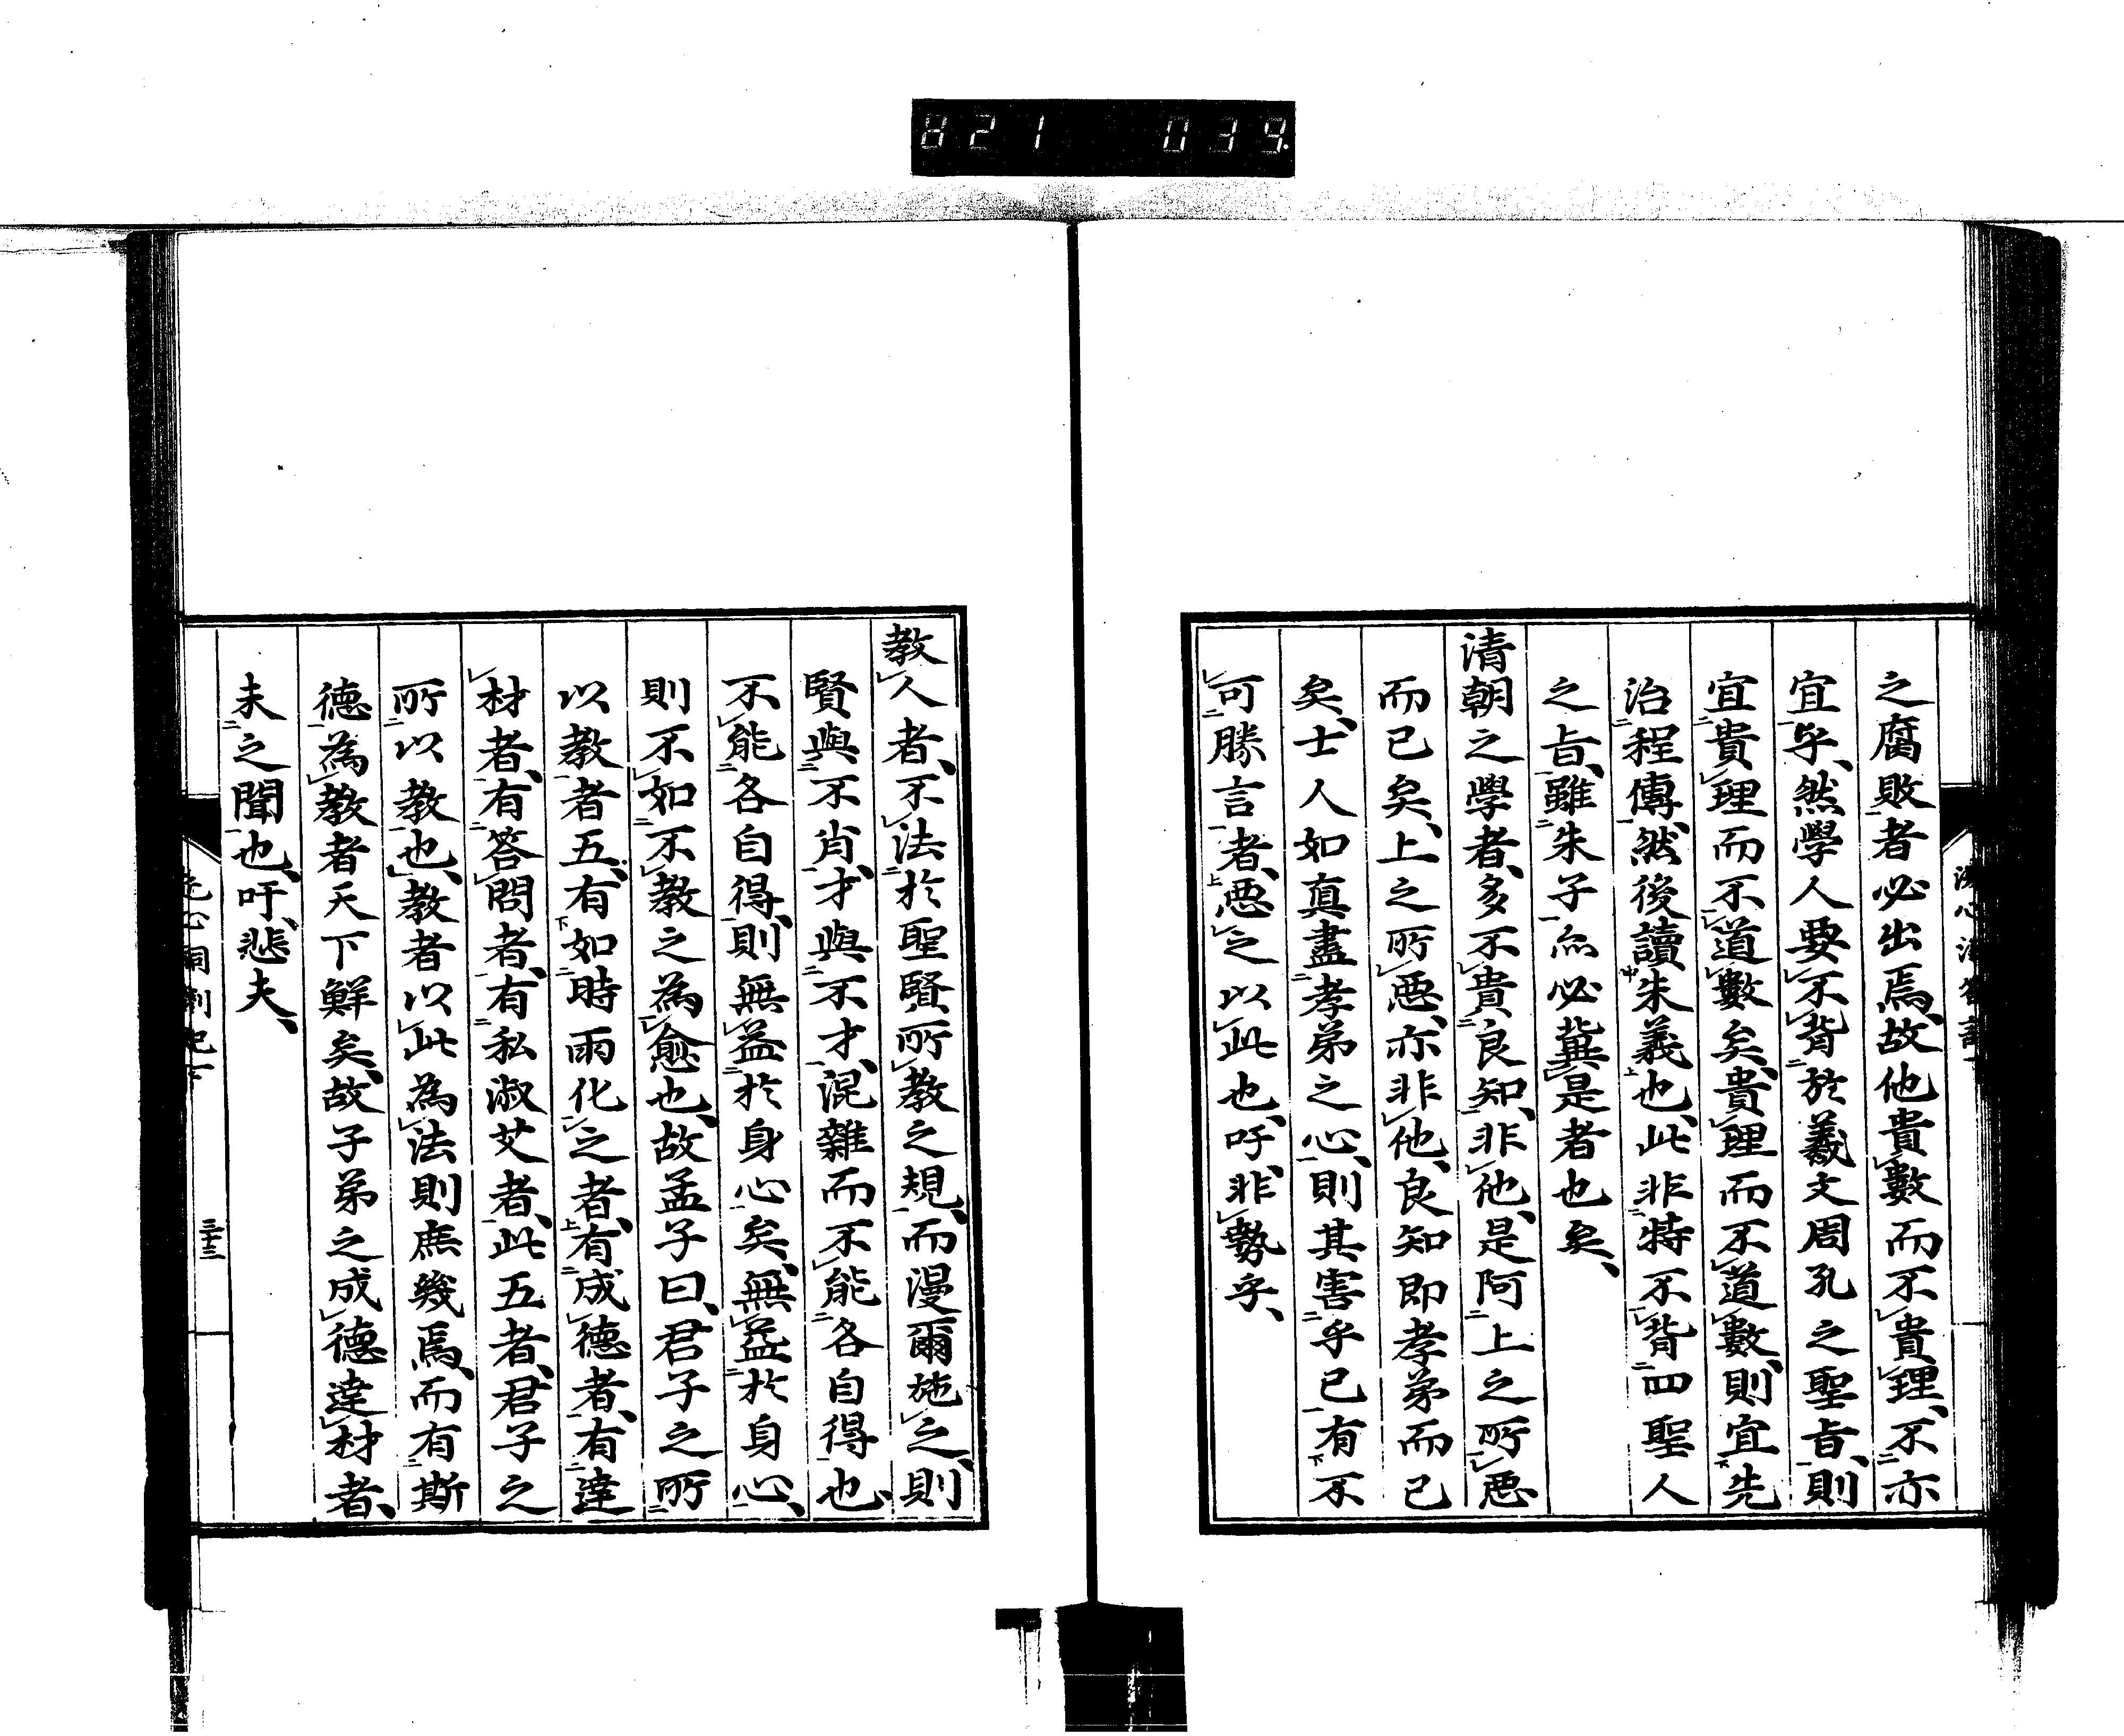 821 039
之腐敗者必出焉、故他貴數而不貴理、不亦
宜乎、然學人要不背於羲文周孔之聖旨、則
宜貴理而不道數矣、貴理而不道數、則宜先
治程傳、然後讀朱義也、此非特不背四聖人
之旨、雖朱子亦必冀是者也矣、
清朝之學者、多不貴良知、非他、是阿上之所惡
而已矣、上之所惡、亦非他、良知即孝弟而已
矣、士人如真盡孝弟之心、則其害乎已有不
可勝言者、惡之以此也、吁、非勢乎、
教人者、不法於聖賢所教之規、而漫爾施之、則
賢與不肖、才與不才、混雜而不能各自得也、
不能各自得、則無益於身心矣、無益於身心、
則不如不教之為愈也、故孟子曰、君子之所
以教者五、有如時雨化之者、有成德者、有達
材者、有答問者、有私淑艾者、此五者、君子之
所以教也、教者以此為法則庶幾焉、而有斯
德為教者天下鮮矣、故子弟之成德達材者、
未之聞也、吁、悲夫、
三十三